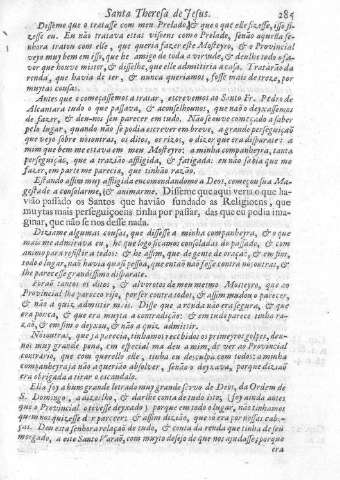 Santa Theresa de Jesus. 285
Dissème que o tratasse com meu Prelado, & que o que elle fizesse, isso fi-
zesse eu. Eu não tratava estas visoens com o Prelado, senão aquella se-
nhora tratou com elle, que queria fazer este Mosteyro, & o Provincial
veyo muy bem em isso, que he amigo de toda a virtude, & deulhe todo o fa-
vor que houve mister, & disselhe, que elle admitiria a casa. Tratarão da
renda, que havia de ter, & nunca queriamos, fosse mais de treze, por
muytas cousas.
Antes que o começassemos a tratar, escrevemos ao Santo Fr. Pedro de
Alcantara tudo o que passava, & aconselhounos, que não o deyxassemos
de fazer, & deu-nos seu parecer em tudo. Não se ouve começado a saber
pelo lugar, quando não se podia escrever em breve, a grande perseguiçaõ
que veyo sobre nòs outras, os ditos, os rizos, o dizer que era disparate: a
mim que bem me estava em meu Mosteyro: a minha companheyra, tanta
perseguição, que a trazião affligida, & fatigada: eu não sabia que me
fazer, em parte me parecia, que tinhão razão.
Estando assim muy affligida encomendandome a Deos, começou sua Ma-
gestade a consolarme, & animarme. Dissème que aqui veria o que ha-
vião passado os Santos que havião fundado as Religioens, que
muytas mais perseguiçoens tinha por passar, das que eu podia ima-
ginar, que não se nos desse nada.
Diziame algumas cousas, que dissesse a minha companheyra, & o que
mais me admirava eu, he que logo ficamos consoladas do passado, & com
animo para resistir a todos: & he assim, que de gente de oraçaõ, & em fim,
todo o lugar, não havia quasi pessoa, que então não fosse contra nòs outras, &
lhe parecesse grandissimo disparate.
Forão tantos os ditos, & alvorotos de meu mesmo Mosteyro, que ao
Provincial lhe pareceo rijo, porse contra todos, & assim mudou o parecer,
& não a quiz admitir mais. Disse que a renda não era segura, & que
era pouca, & que era muyta a contradiçaõ: & em tudo parece tinha ra-
zaõ, & em fim o deyxou, & não a quiz admitir.
Nòs outras, que ja parecia, tinhamos recebidos os primeyros golpes, deu-
nos muy grande pena, em especial ma deu a mim, de ver ao Provincial
contrario, que com querello elle, tinha eu desculpa com todos: a minha
companheyra ja não a querião absolver, senão o deyxava, porque dizião
era obrigada a tirar o escandalo.
Ella foy a hum grande letrado muy grande servo de Deos, da Ordem de
S. Domingo, a dizelho, & darlhe conta de tudo isto, (foy ainda antes
que o Provincial o tivesse deyxado) porque em todo o lugar, não tinhamos
quem nos quizesse dar parecer: & assim dizião, que só era por nossas cabe-
ças. Deu esta senhora relaçaõ de tudo, & conta da renda que tinha de seu
morgado, a este Santo Varaõ, com muyto desejo de que nos ajudasse; porque
era